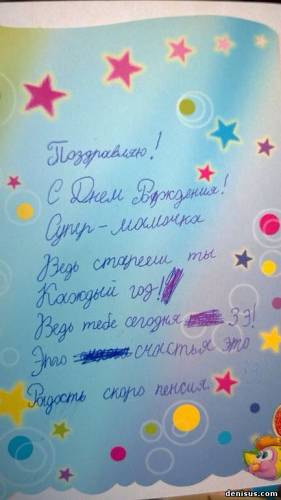 Поздравляю!
С Днем Рождения!
Супер-мамочка
Ведь старееш ты
Каждый год-!
Ведь тебе сегодня 33!
Это счастья это
Радость скоро пенсия.
denisus.com